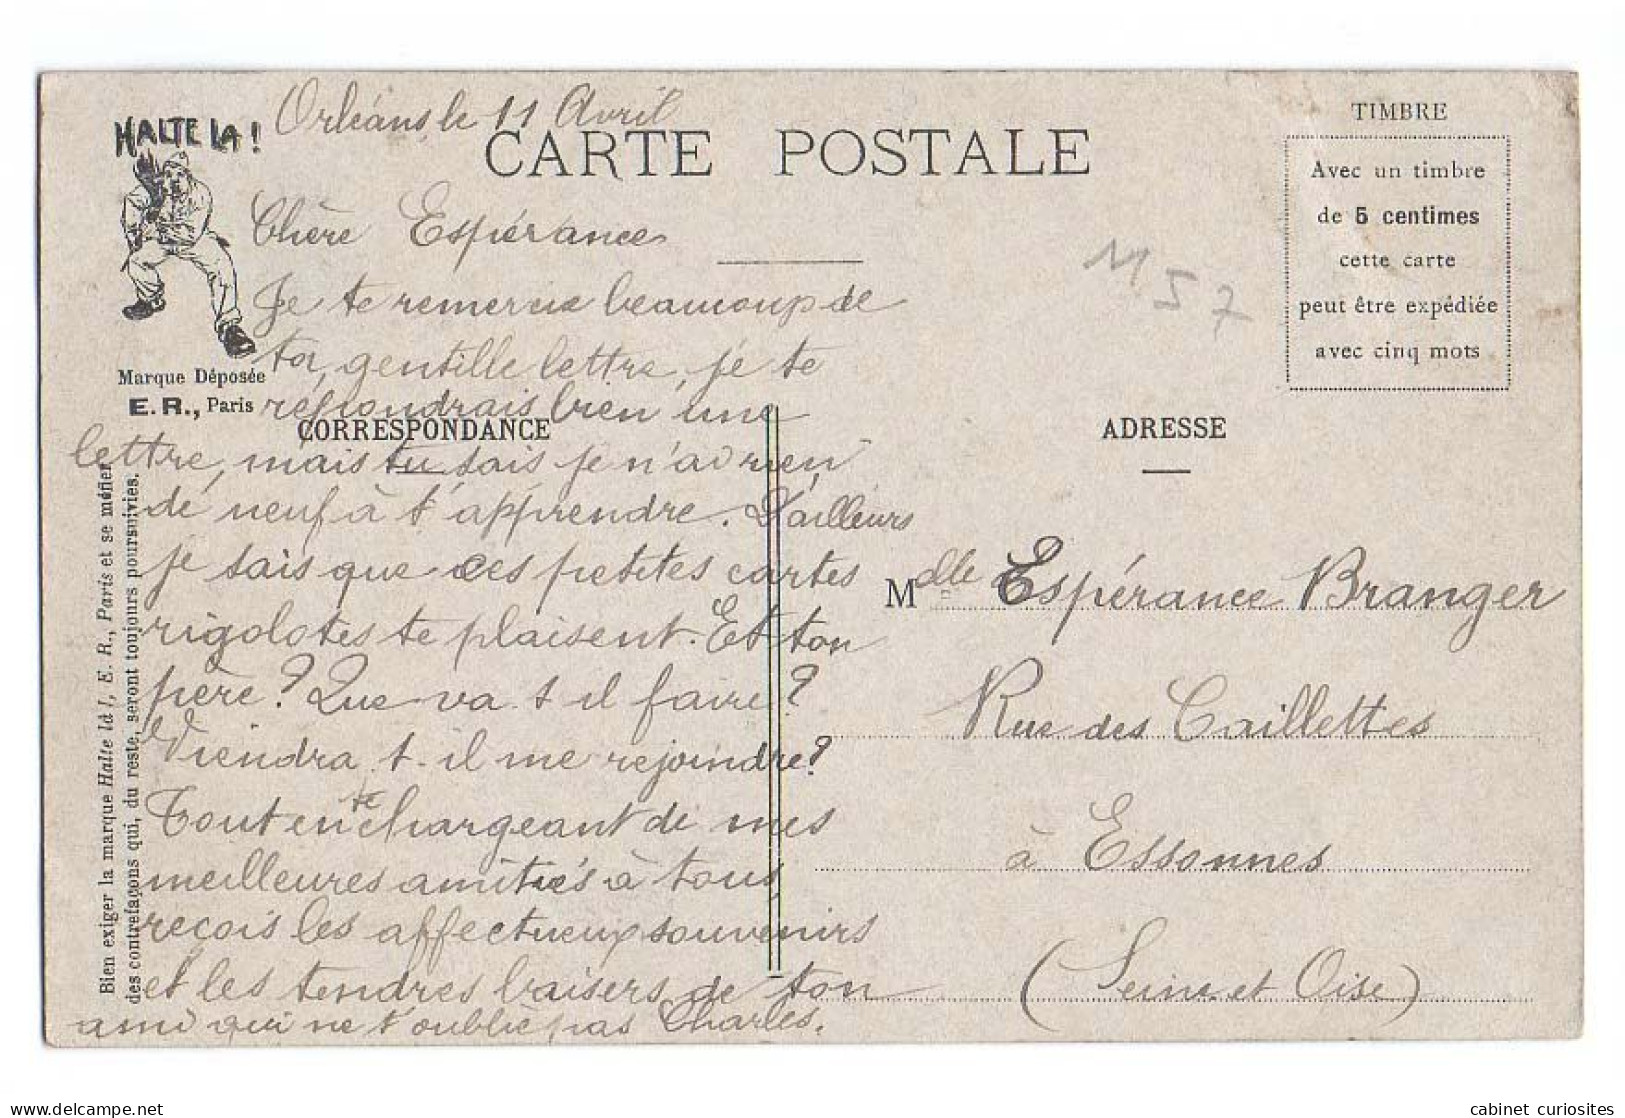 HALTE LA !
Orléans, le 11 Avril
CARTE POSTALE
TIMBRE
Avec un timbre
de 5 centimes
cette carte
peut être expédiée
avec cinq mots
M 57
Marque Déposée
E. R., Paris
CORRESPONDANCE
Chère Espérance
Je te remercie beaucoup de
ta gentille lettre, je te
répondrais bien une
lettre, mais tu sais je n'ai rien
de neuf à t'apprendre. D'ailleurs
je sais que ces petites cartes
rigolotes te plaisent. Et ton
père? Que va t il faire?
Viendra t-il me rejoindre?
Tout en te chargeant de mes
meilleures amitiés à tous,
reçois les affectueux souvenirs
et les tendres baisers de ton
ami qui ne t'oublie pas Charles.
ADRESSE
Mdlle Espérance Branger
Rue des Caillettes
à Essonnes
(Seine et Oise)
Bien exiger la marque Halte là !, E. R., Paris et se méfier
des contrefaçons qui, du reste, seront toujours poursuivies.
cabinet_curiosites
delcampe.net